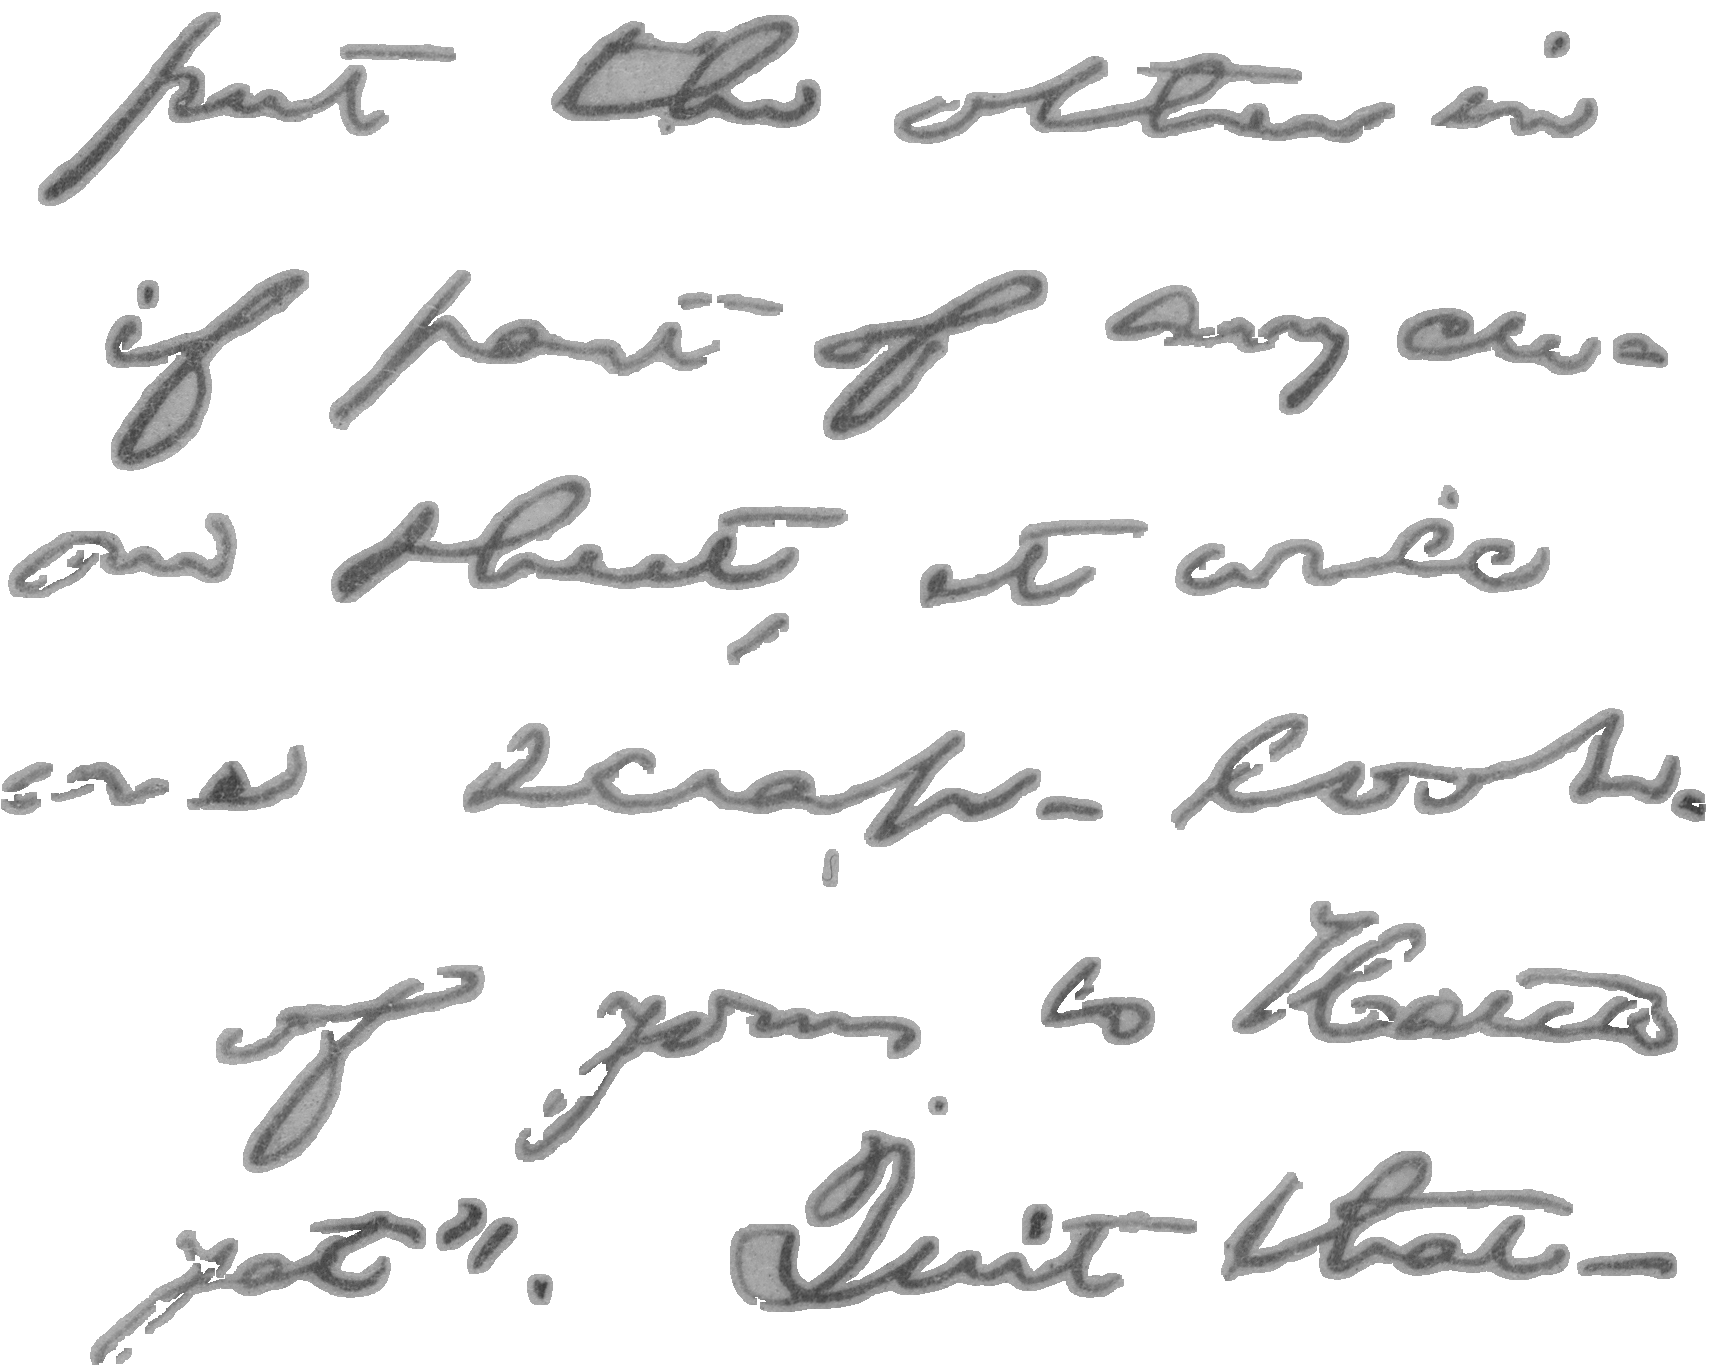 put the other in
if part of any
sheet, at once
in a scrap-book.
of yours to
yet". Quit that—